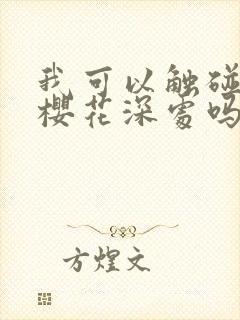 我可以触碰
樱花深处吗
方煌文